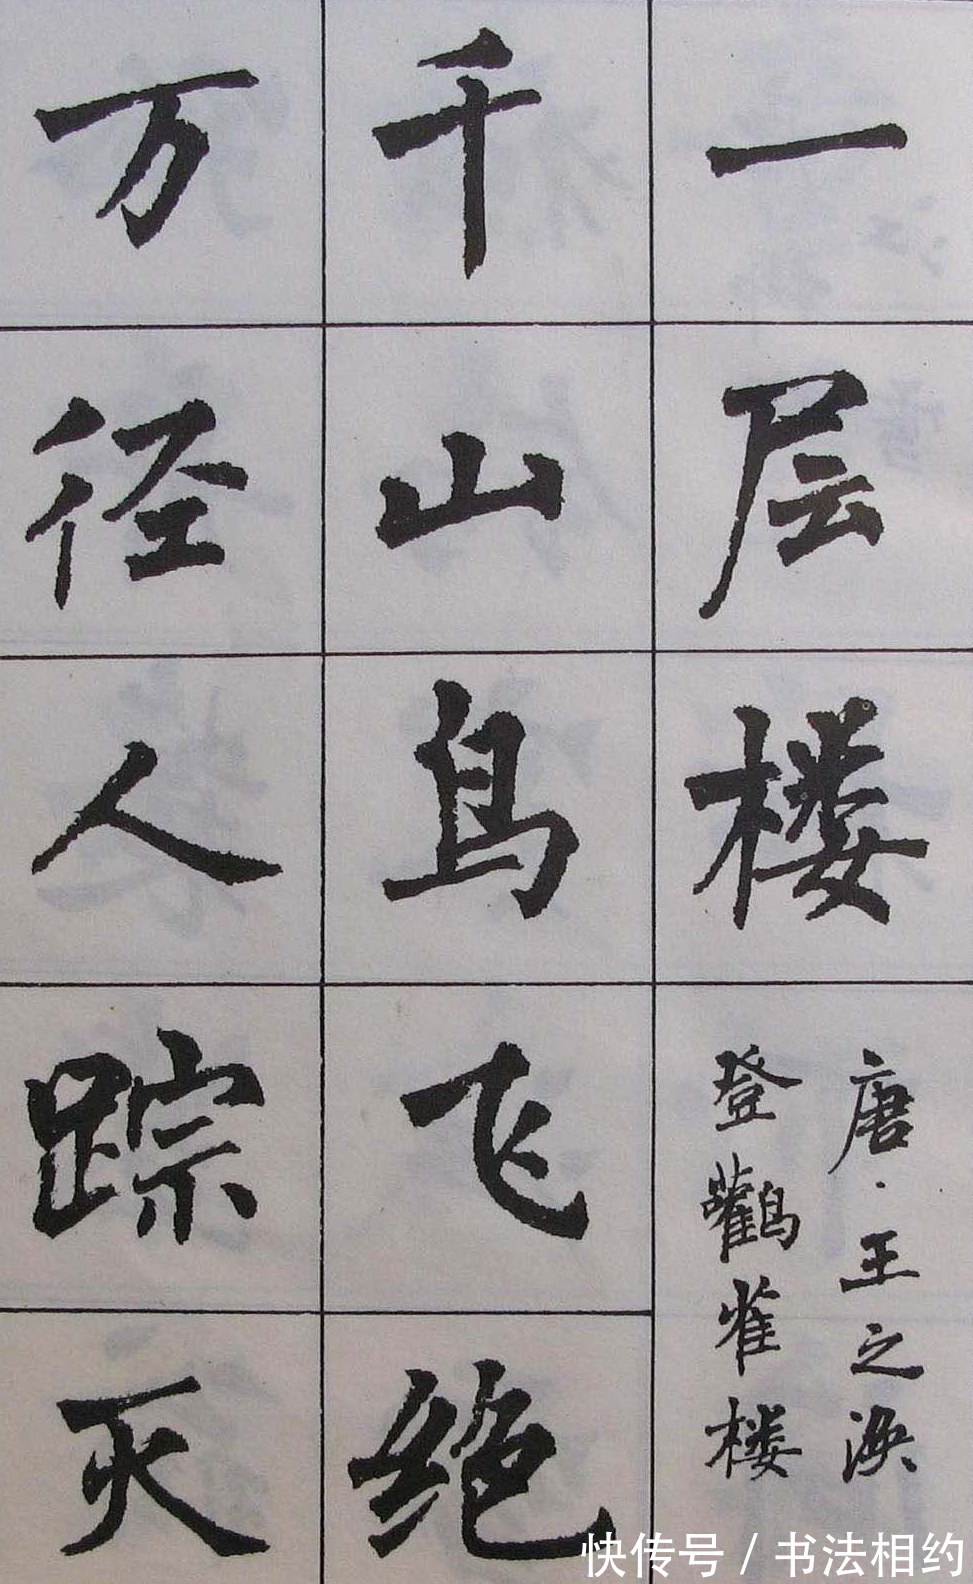 一层楼
唐·王之涣
登鸛雀楼
千山鸟飞绝
万径人踪灭
快传号/书法相约